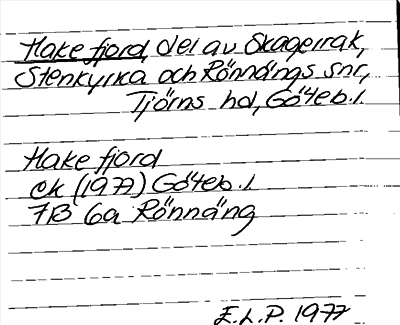 Hake fjord, del av Skagerrak,
Stenkyrka och Rönnängs snr,
Tjörns hd, Göteb. l.
Hake fjord
ek (1977) Göteb. l.
7B 6a Rönnäng
E.L.P. 1977